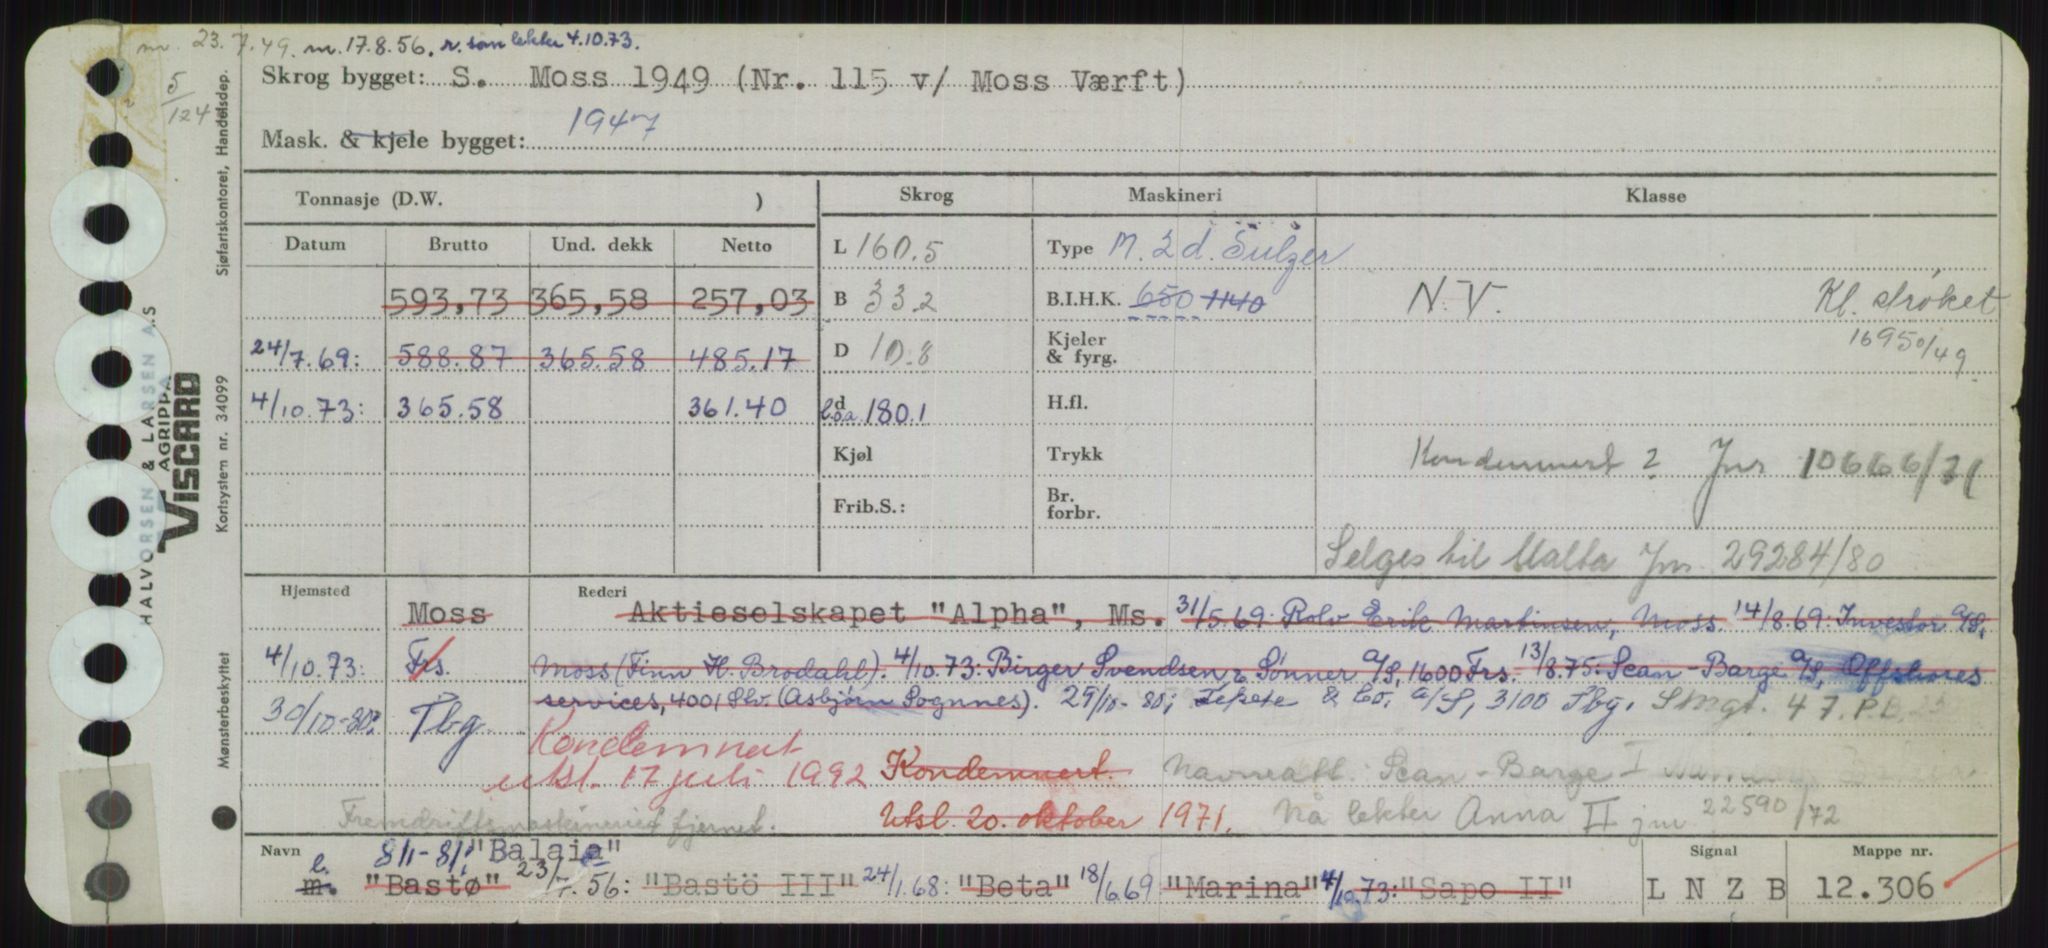 m. 23.7.49. m. 17.8.56. r. som lekter 4.10.73.
5/124
Skrog bygget: S. Moss 1949 (Nr. 115 v/ Moss Værft)
Mask. & kjele bygget: 1947
Tonnasje (D.W. )
Skrog
Maskineri
Klasse
Datum Brutto Und. dekk Netto
593,73 365,58 257,03
24/7.69: 588.87 365.58 485.17
4/10.73: 365.58 361.40
L 160.5
B 33.2
D 10.8
d l.o.a 180.1
Kjøl
Frib.S.:
Type M. 2 d. Sulzer
B.I.H.K. 650 1140
Kjeler & fyrg.
H.fl.
Trykk
Br. forbr.
N.V. Kl. strøket
16950/49
Kondemnert ? Jnr 10666/71
Selges til Malta Jnr. 29284/80
Hjemsted Rederi
Moss Aktieselskapet "Alpha", Ms. 31/5.69: Rolv Erik Martinsen, Moss. 14/8.69: Investor A/S,
4/10.73: Frs. Moss (Finn H. Brodahl). 4/10.73: Birger Svendsen & Sønner A/S, 1600 Frs. 13/8.75: Scan-Barge A/S, Offshores
services, 4001 Stv. (Asbjørn Sognnes). 29/10-80; Tepete & Co. A/S, 3100 Tbg. Smgt. 47. P.B.
30/10-80: Tbg.
Kondemnert
utsl. 17 juli 1992 Kondemnert. Navneatt. Scan-Barge I
Utsl. 20. oktober 1971. Nå lekter Anna II jnr 22590/72
Fremdriftsmaskineriet fjernet.
Navn 8/1-81: "Balaia"
l. m. "Bastø" 23/7.56: "Bastö III" 24/1.68: "Beta" 18/6.69 "Marina" 4/10.73: "Sapo II"
Signal
L N Z B
Mappe nr.
12.306
Sjøfartskontoret, Handelsdep.
Kortsystem nr. 34099
Mønsterbeskyttet
HALVORSEN & LARSEN A.S
AGRIPPA
VISCARD